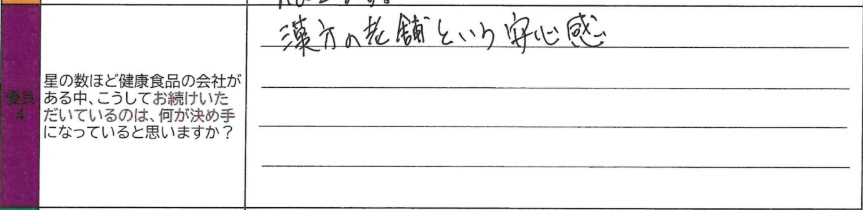 漢方の老舗という安心感
優良
4
星の数ほど健康食品の会社が
ある中、こうしてお続けいた
だいているのは、何が決め手
になっていると思いますか？